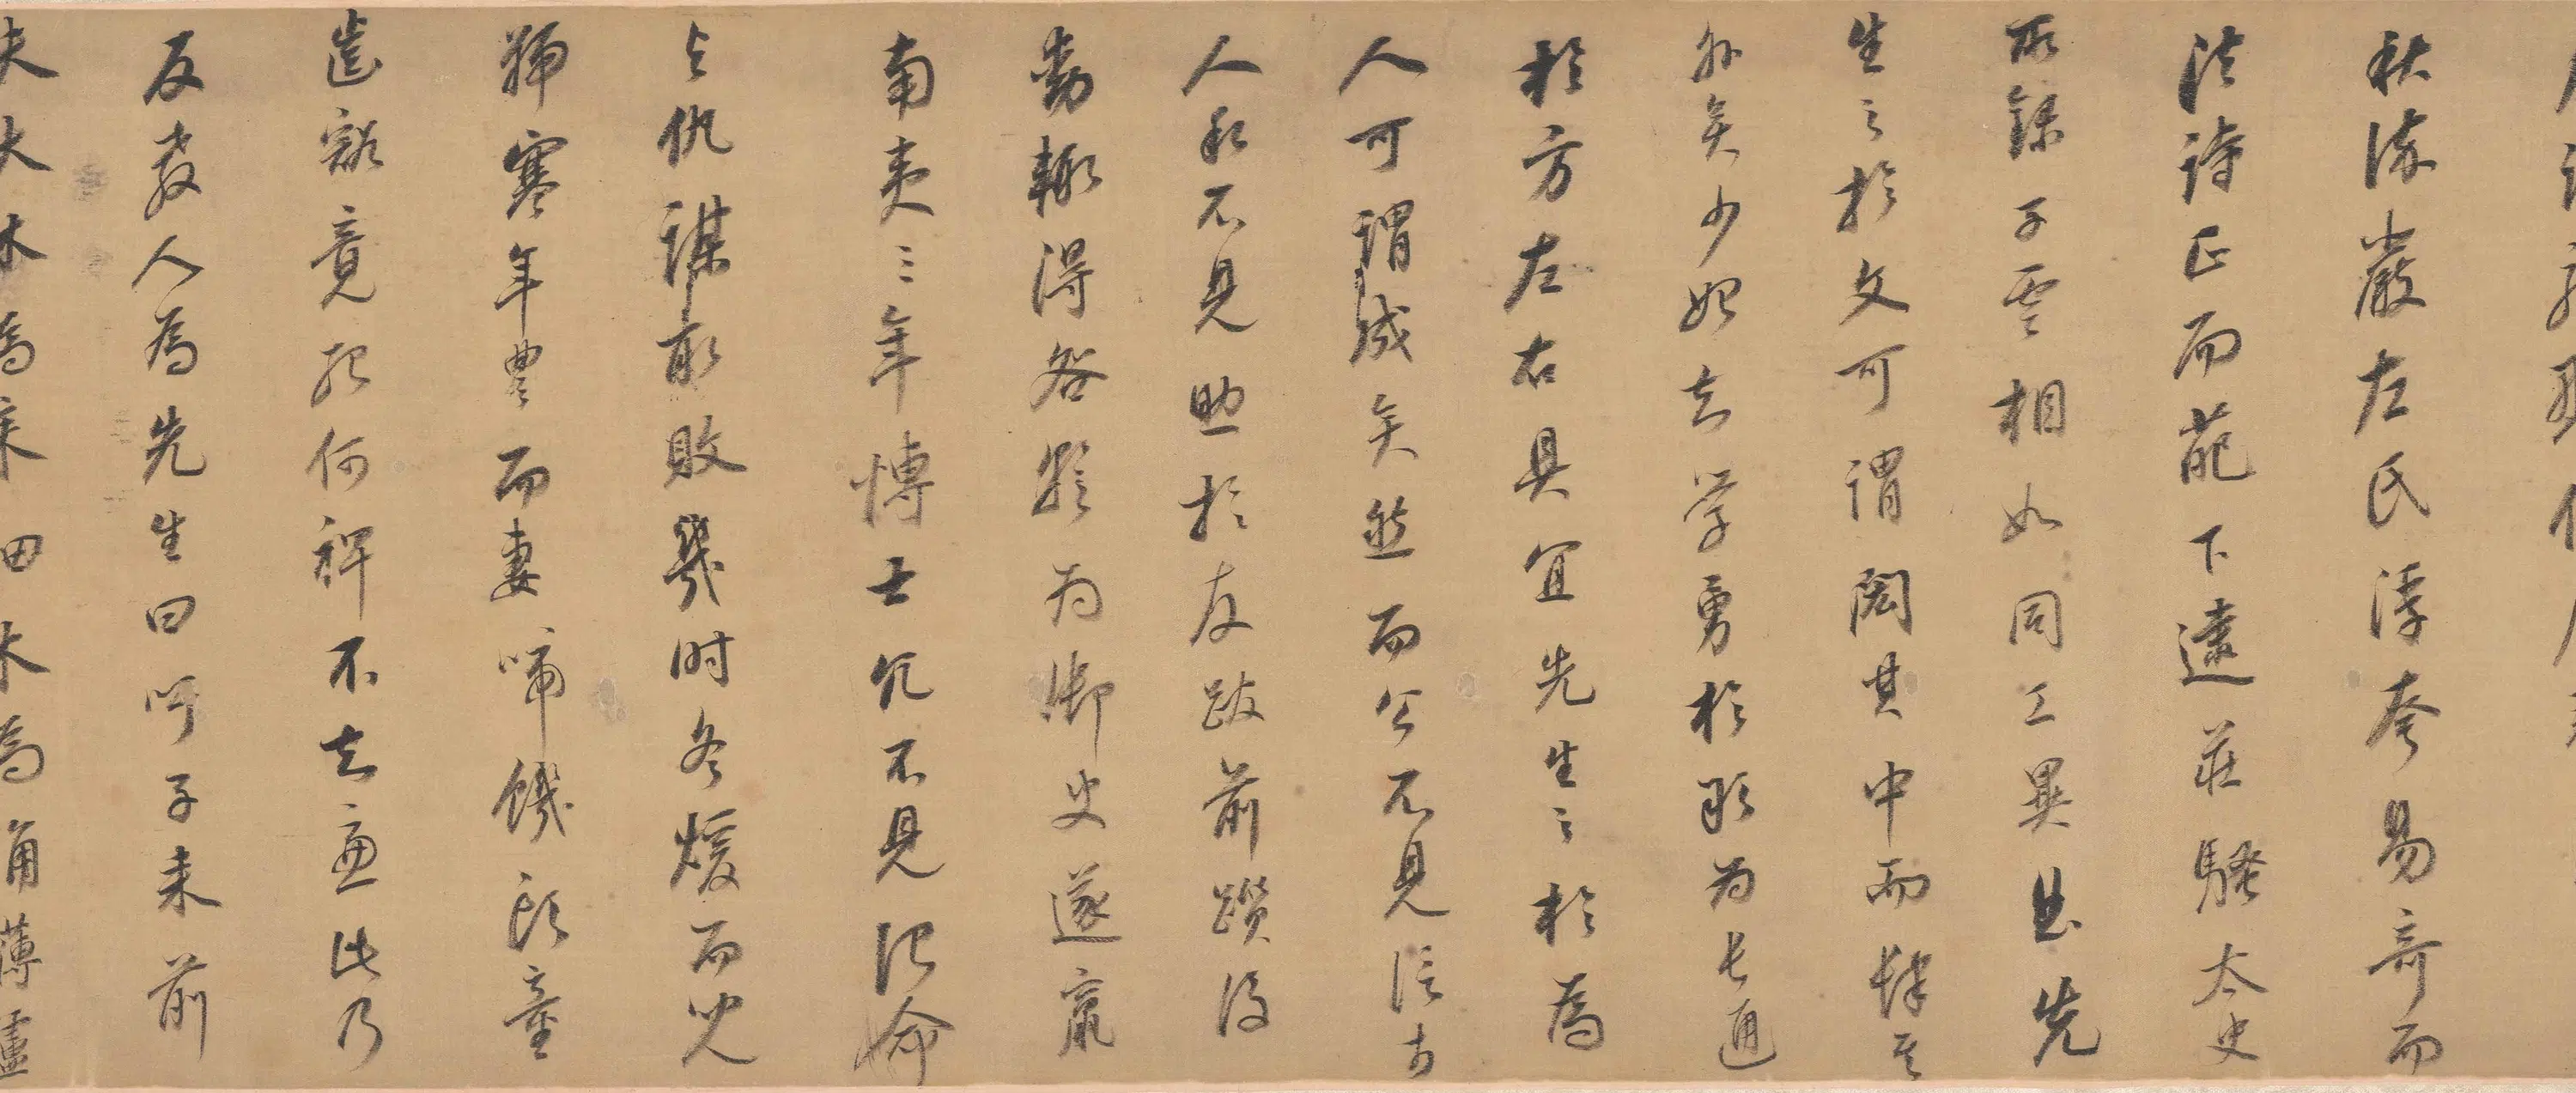 秋謹嚴左氏浮夸易奇而
法詩正而葩下逮莊騷太史
所錄子雲相如同工異曲先
生之於文可謂閎其中而肆其
外矣少始知学勇於敢為長通
於方左右具宜先生之於為
人可謂成矣然而公不見信於
人私不見助於友跋前躓後
動輒得咎暫為御史遂竄
南夷三年博士冗不見治命
与仇謀取敗幾时冬煖而兒
號寒年豐而妻啼饑頭童
齒豁竟死何裨不知慮此乃
反教人為先生曰吁子来前
夫大木為杗細木為桷欂櫨